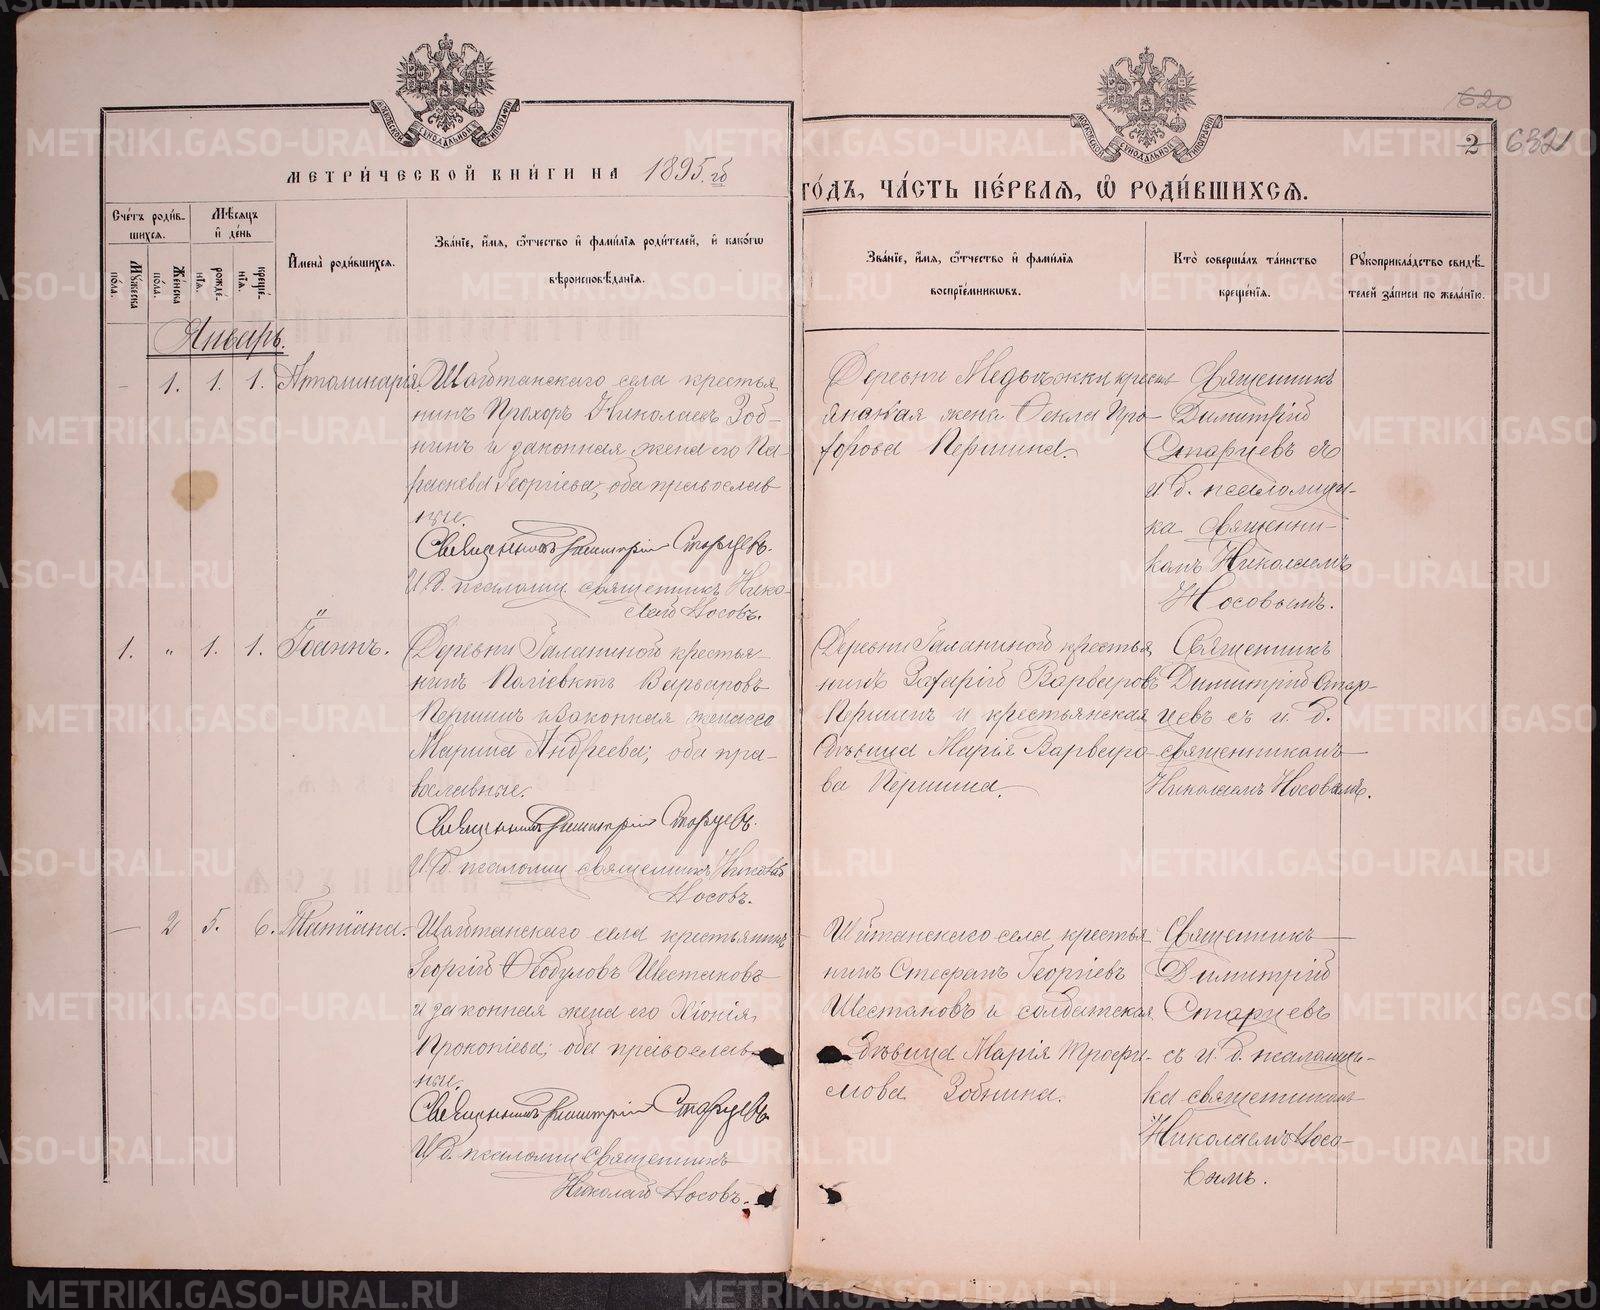 МЕТРИ́ЧЕСКОЙ КНИ́ГИ НА 1895. гѡ́дъ, ЧА́СТЬ ПЕ́РВАЯ, Ѡ҆ РОДИ́ВШИХСЯ.
620
2 632
Сче́тъ роди́в-
шихся.
Му́жеска
по́ла.
Же́нска
по́ла.
Мѣ́сяцъ
и҆ де́нь
рожде́-
нїя.
креще́-
нїя.
И҆мена̀ роди́вшихся.
Зва́нїе, и҆́мя, ѻ҆́тчество и҆ фами́лїя роди́телей, и҆ како́гѡ
вѣроисповѣ́данїя.
Зва́нїе, и҆́мя, ѻ҆́тчество и҆ фами́лїя
воспрїе́мникѡвъ.
Кто̀ соверша́лъ та́инство
креще́нїя.
Рꙋкоприкла́дство свидѣ́-
телей за́писи по жела́нїю.
Январь.
– 1. 1. 1. Апполинарія.
Шайтанскаго села крестья
нинъ Прохоръ Николаевъ Зоб-
нинъ и законная жена его Па-
раскева Георгіева, оба православ
ные.
Священникъ Димитрій Старцевъ.
И. д. псаломщ. священникъ Нико-
лай Носовъ.
Деревни Медвѣжки кресть
янская жена Фекла Про-
хорова Першина.
Священникъ
Димитрій
Старцевъ съ
и д. псаломщи-
ка священни-
комъ Николаемъ
Носовымъ.
1. „ 1. 1. Іоаннъ.
Деревни Галаниной крестья-
нинъ Поліевктъ Варваровъ
Першинъ и законная жена его
Марина Андреева; оба пра-
вославные.
Священникъ Димитрій Старцевъ.
И. д. псаломщ. священникъ Николай
Носовъ.
Деревни Галаниной крестья
нинъ Захарій Варваровъ
Першинъ и крестьянская
дѣвица Марія Варваро-
ва Першина.
Священникъ
Димитрій Стар-
цевъ съ и. д.
священникомъ
Николаемъ Носовымъ.
– 2 5. 6. Татіана.
Шайтанскаго села крестьянинъ
Георгій Ѳеодуловъ Шестаковъ
и законная жена его Хіонія
Прокопіева; оба православ-
ные.
Священникъ Димитрій Старцевъ.
И. д. псаломщ. священникъ
Николай Носовъ.
Шйтанскаго села крестья
нинъ Стефанъ Георгіевъ
Шестаковъ и солдатская
дѣвица Марія Трофи-
мова Зобнина.
Священникъ
Димитрій
Старцевъ
съ и. д. псаломщи-
ка священникомъ
Николаемъ Носо-
вымъ.
METRIKI.GASO-URAL.RU